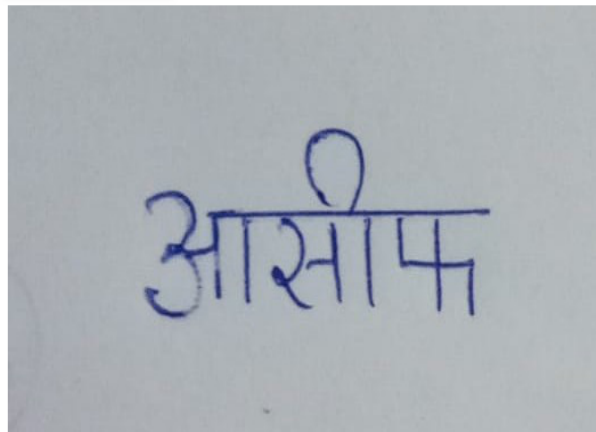 आसीफ